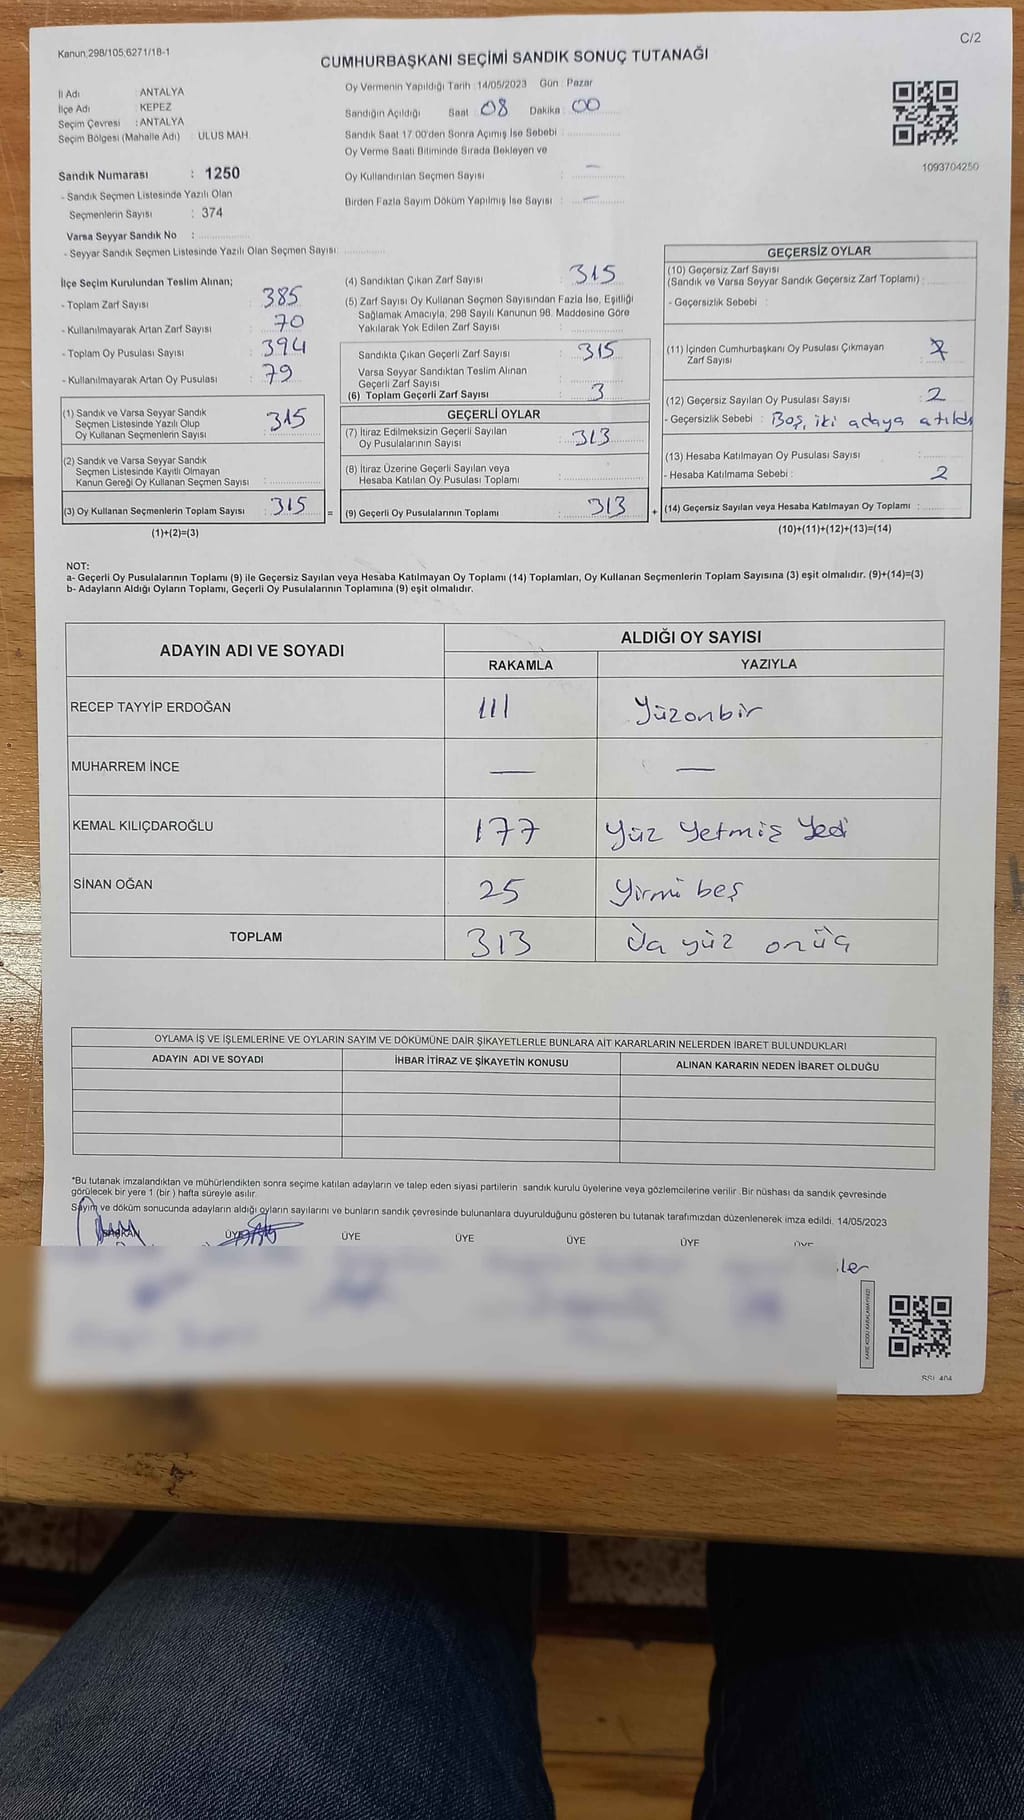 Kanun,298/105,6271/18-1
C/2
CUMHURBAŞKANI SEÇİMİ SANDIK SONUÇ TUTANAĞI
İl Adı : ANTALYA
İlçe Adı : KEPEZ
Seçim Çevresi : ANTALYA
Seçim Bölgesi (Mahalle Adı) : ULUS MAH.
Sandık Numarası : 1250
- Sandık Seçmen Listesinde Yazılı Olan
Seçmenlerin Sayısı : 374
Varsa Seyyar Sandık No :
- Seyyar Sandık Seçmen Listesinde Yazılı Olan Seçmen Sayısı:
Oy Vermenin Yapıldığı Tarih :14/05/2023 Gün : Pazar
Sandığın Açıldığı Saat : 08 Dakika : 00
Sandık Saat 17.00'den Sonra Açımış İse Sebebi :
Oy Verme Saati Bitiminde Sırada Bekleyen ve
Oy Kullandırılan Seçmen Sayısı : —
Birden Fazla Sayım Döküm Yapılmış İse Sayısı : —
1093704250
İlçe Seçim Kurulundan Teslim Alınan;
- Toplam Zarf Sayısı : 385
- Kullanılmayarak Artan Zarf Sayısı : 70
- Toplam Oy Pusulası Sayısı : 394
- Kullanılmayarak Artan Oy Pusulası : 79
(1) Sandık ve Varsa Seyyar Sandık
Seçmen Listesinde Yazılı Olup
Oy Kullanan Seçmenlerin Sayısı : 315
(2) Sandık ve Varsa Seyyar Sandık
Seçmen Listesinde Kayıtlı Olmayan
Kanun Gereği Oy Kullanan Seçmen Sayısı :
(3) Oy Kullanan Seçmenlerin Toplam Sayısı : 315
(1)+(2)=(3)
=
(4) Sandıktan Çıkan Zarf Sayısı : 315
(5) Zarf Sayısı Oy Kullanan Seçmen Sayısından Fazla İse, Eşitliği
Sağlamak Amacıyla, 298 Sayılı Kanunun 98. Maddesine Göre
Yakılarak Yok Edilen Zarf Sayısı :
Sandıkta Çıkan Geçerli Zarf Sayısı : 315
Varsa Seyyar Sandıktan Teslim Alınan
Geçerli Zarf Sayısı :
(6) Toplam Geçerli Zarf Sayısı : 3
GEÇERLİ OYLAR
(7) İtiraz Edilmeksizin Geçerli Sayılan
Oy Pusulalarının Sayısı : 313
(8) İtiraz Üzerine Geçerli Sayılan veya
Hesaba Katılan Oy Pusulası Toplamı :
(9) Geçerli Oy Pusulalarının Toplamı : 313
+
GEÇERSİZ OYLAR
(10) Geçersiz Zarf Sayısı
(Sandık ve Varsa Seyyar Sandık Geçersiz Zarf Toplamı) :
- Geçersizlik Sebebi :
(11) İçinden Cumhurbaşkanı Oy Pusulası Çıkmayan
Zarf Sayısı :
(12) Geçersiz Sayılan Oy Pusulası Sayısı : 2
- Geçersizlik Sebebi : Boş, iki adaya atıldı
(13) Hesaba Katılmayan Oy Pusulası Sayısı :
- Hesaba Katılmama Sebebi : 2
(14) Geçersiz Sayılan veya Hesaba Katılmayan Oy Toplamı :
(10)+(11)+(12)+(13)=(14)
NOT:
a- Geçerli Oy Pusulalarının Toplamı (9) ile Geçersiz Sayılan veya Hesaba Katılmayan Oy Toplamı (14) Toplamları, Oy Kullanan Seçmenlerin Toplam Sayısına (3) eşit olmalıdır. (9)+(14)=(3)
b- Adayların Aldığı Oyların Toplamı, Geçerli Oy Pusulalarının Toplamına (9) eşit olmalıdır.
ADAYIN ADI VE SOYADI
ALDIĞI OY SAYISI
RAKAMLA YAZIYLA
RECEP TAYYİP ERDOĞAN 111 Yüzonbir
MUHARREM İNCE — —
KEMAL KILIÇDAROĞLU 177 Yüz Yetmiş Yedi
SİNAN OĞAN 25 Yirmi beş
TOPLAM 313 yüz onüç
OYLAMA İŞ VE İŞLEMLERİNE VE OYLARIN SAYIM VE DÖKÜMÜNE DAİR ŞİKAYETLERLE BUNLARA AİT KARARLARIN NELERDEN İBARET BULUNDUKLARI
ADAYIN ADI VE SOYADI İHBAR İTİRAZ VE ŞİKAYETİN KONUSU ALINAN KARARIN NEDEN İBARET OLDUĞU
*Bu tutanak imzalandıktan ve mühürlendikten sonra seçime katılan adayların ve talep eden siyasi partilerin sandık kurulu üyelerine veya gözlemcilerine verilir. Bir nüshası da sandık çevresinde
görülecek bir yere 1 (bir) hafta süreyle asılır.
Sayım ve döküm sonucunda adayların aldığı oyların sayılarını ve bunların sandık çevresinde bulunanlara duyurulduğunu gösteren bu tutanak tarafımızdan düzenlenerek imza edildi. 14/05/2023
BAŞKAN ÜYE ÜYE ÜYE ÜYE ÜYE ÜYE
ler